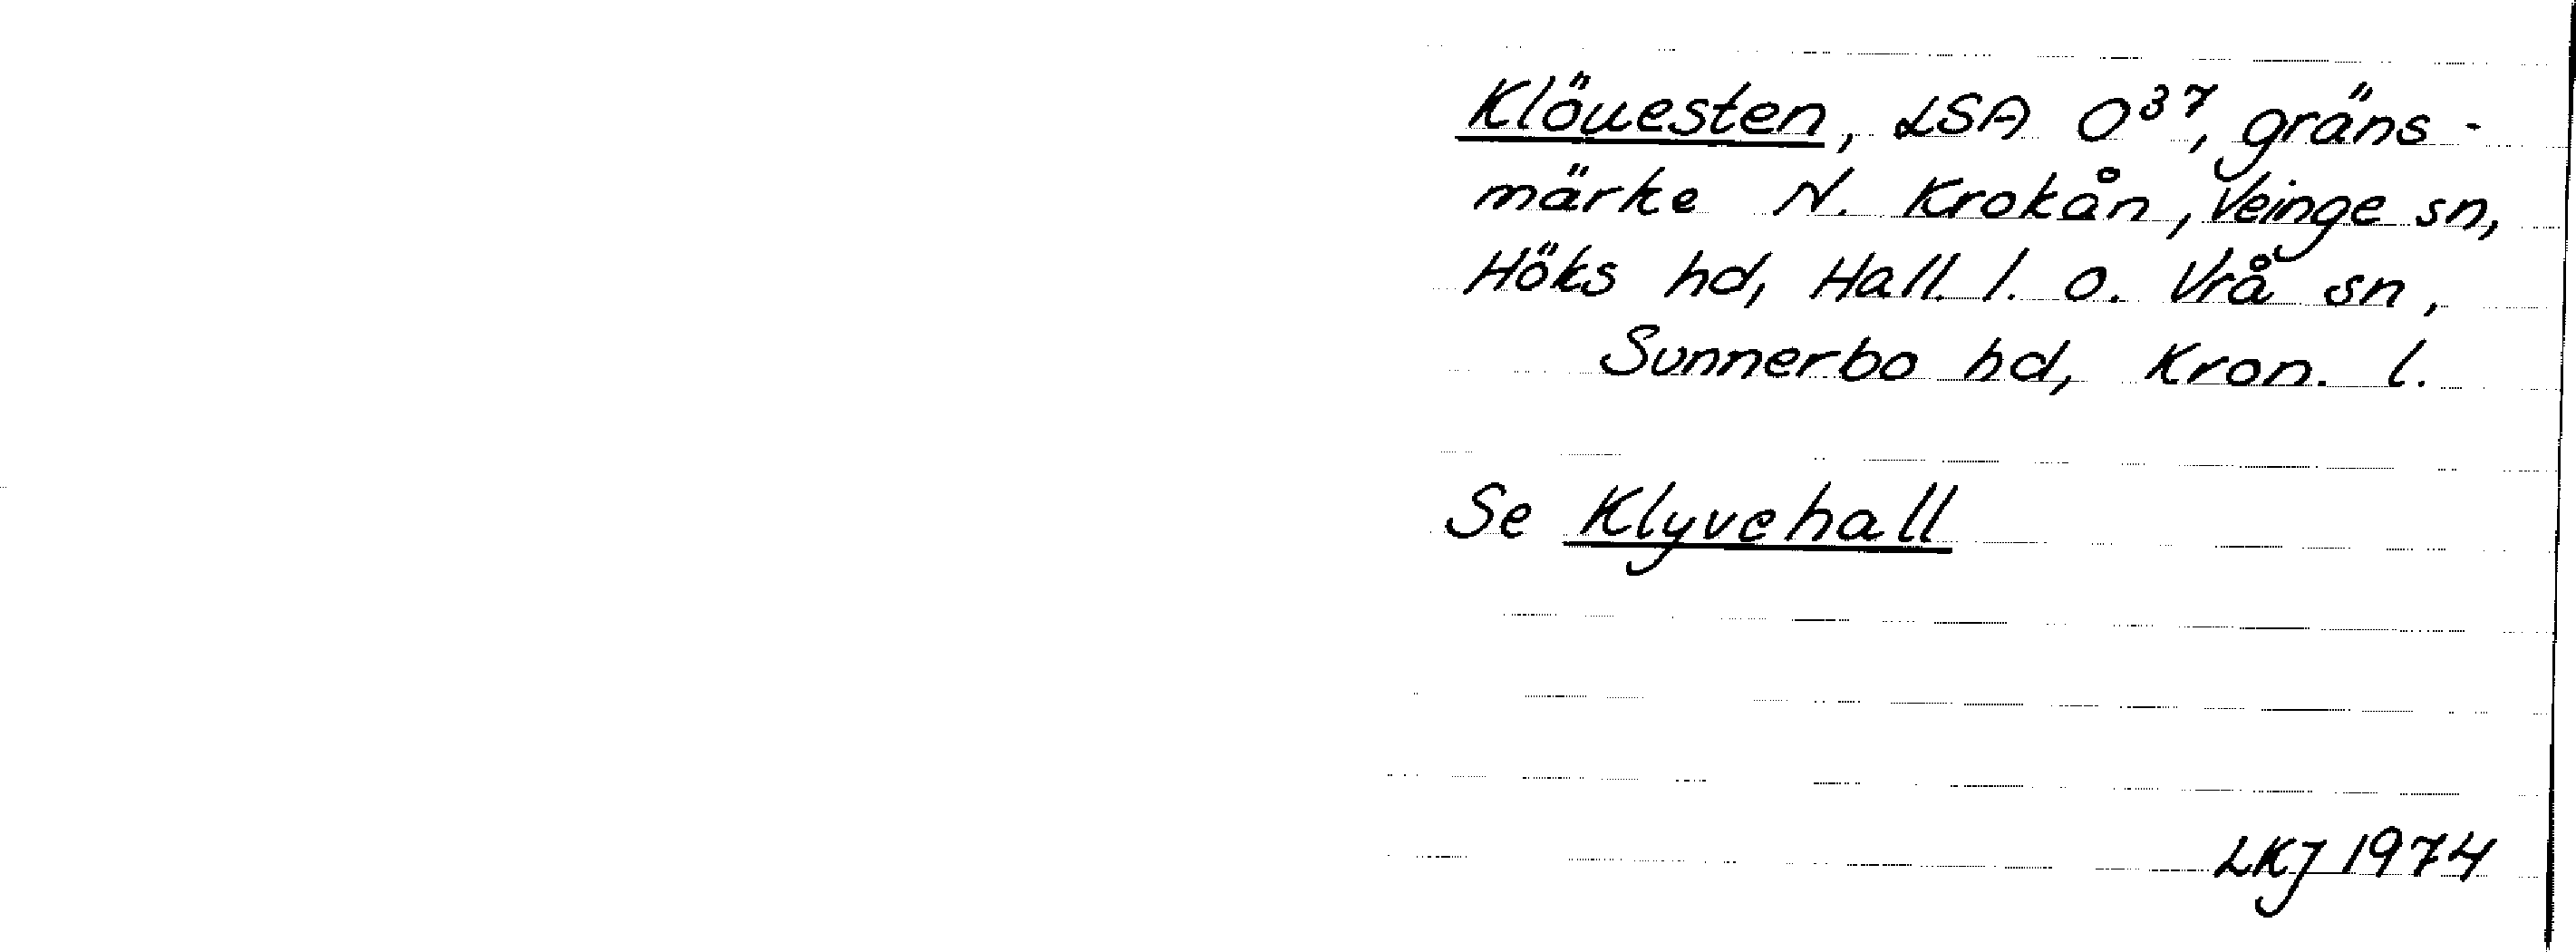 Klöuesten, LSA O³⁷, gräns-
märke N. Krokån, Veinge sn,
Höks hd, Hall. l. o. Vrå sn,
Sunnerbo hd, Kron. l.
Se Klyvehall
LKJ 1974